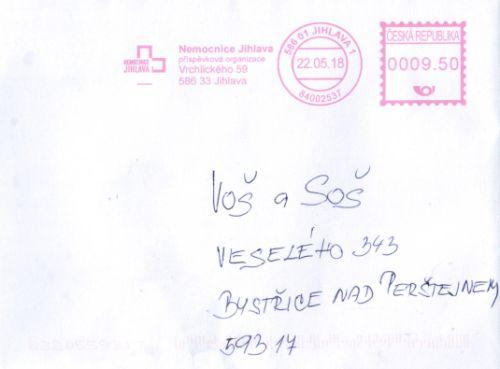 NEMOCNICE
JIHLAVA
Nemocnice Jihlava
příspěvková organizace
Vrchlického 59
586 33 Jihlava
586 01 JIHLAVA 1
22.05.18
84002537
ČESKÁ REPUBLIKA
0009.50
Voš a Soš
VESELÉHO 343
BYSTŘICE NAD PERŠTEJNEM
593 17